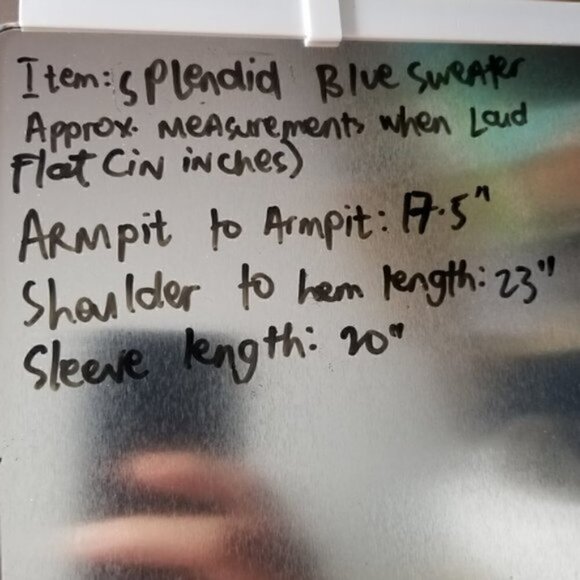 Item: Splendid Blue Sweater
Approx. Measurements when Laid
Flat (in inches)
Armpit to Armpit: 17.5"
Shoulder to hem length: 23"
Sleeve length: 20"